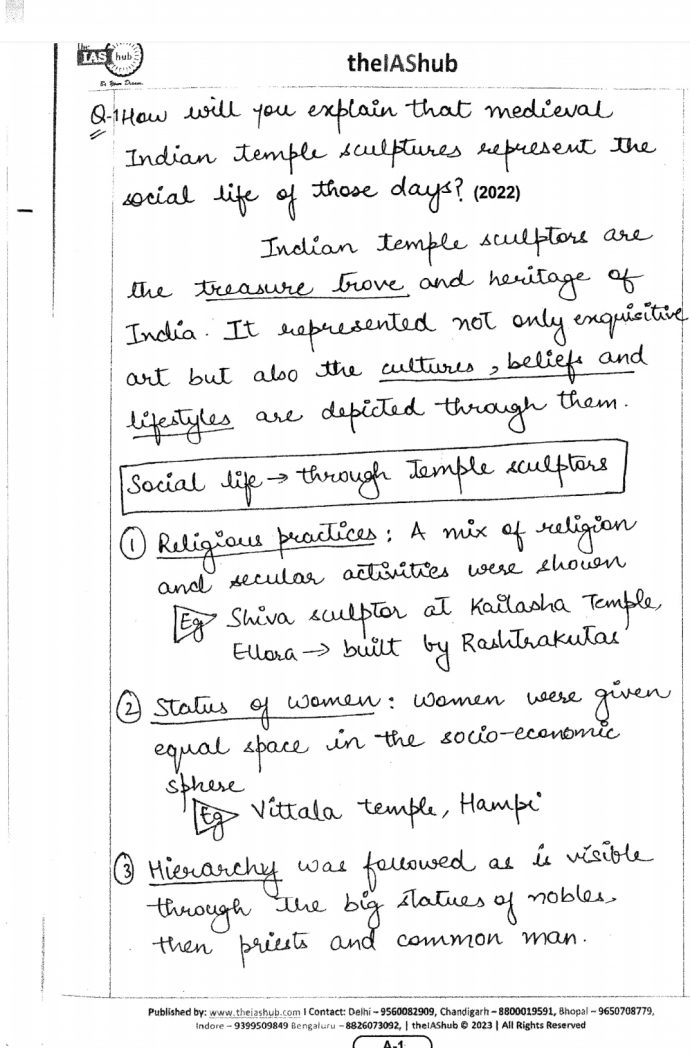 The
IAS hub
Be Your Dream
theIAShub
Q-1 How will you explain that medieval
Indian temple sculptures represent the
social life of those days? (2022)
Indian temple sculptors are
the treasure trove and heritage of
India. It represented not only exquisitive
art but also the cultures, beliefs and
lifestyles are depicted through them.
Social life → through Temple sculptors
① Religious practices: A mix of religion
and secular activities were shown
Eg Shiva sculptor at Kailasha Temple,
Ellora → built by Rashtrakutas
② Status of women: women were given
equal space in the socio-economic
sphere
Eg Vittala temple, Hampi
③ Hierarchy was followed as is visible
through the big statues of nobles,
then priests and common man.
Published by: www.theiashub.com I Contact: Delhi – 9560082909, Chandigarh – 8800019591, Bhopal – 9650708779,
Indore – 9399509849 Bengaluru – 8826073092, | theIAShub © 2023 | All Rights Reserved
A-1